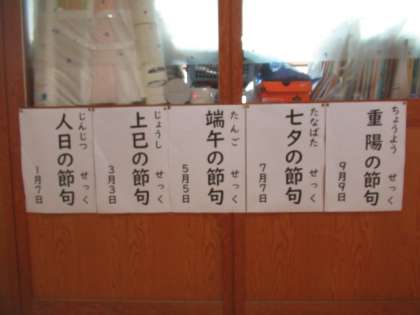 じんじつ せっく
人日の節句
1月7日
じょうし せっく
上巳の節句
3月3日
たんご せっく
端午の節句
5月5日
たなばた せっく
七夕の節句
7月7日
ちょうよう せっく
重陽の節句
9月9日